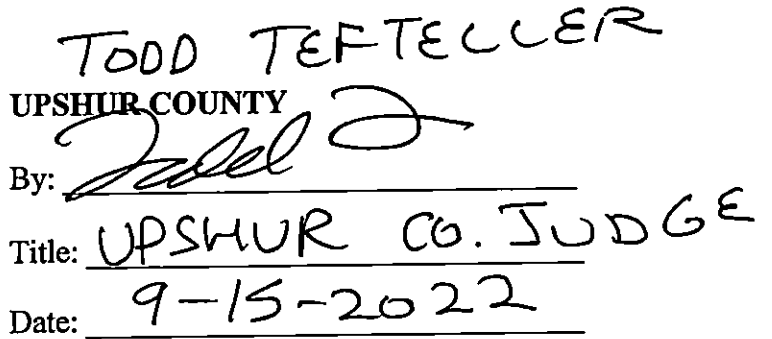 TODD TEFTELLER
UPSHUR COUNTY
By: Todd T
Title: UPSHUR CO. JUDGE
Date: 9-15-2022